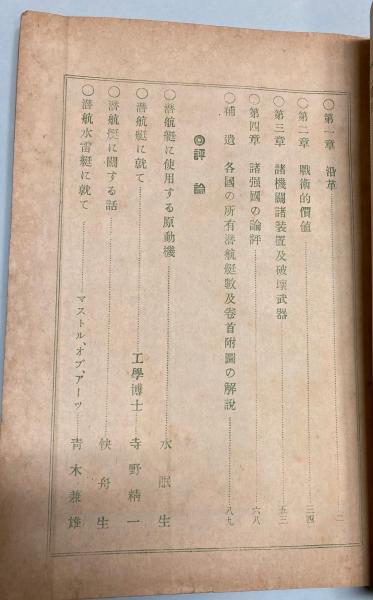 ○第一章 沿革………一
○第二章 戰術的價値………三四
○第三章 諸機關諸裝置及破壞武器………五三
○第四章 諸强國の論評………六八
○補遺 各國の所有潜航艇數及卷首附圖の解說………八九
◎評論
○潜航艇に使用する原動機………水眠生
○潜航艇に就て………工學博士 寺野精一
○潜航艇に關する話………快舟生
○潜航水雷艇に就て………マストル、オブ、アーツ 靑木兼雄